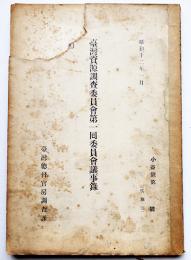 昭和十二年 月
臺灣資源調查委員會第一回委員會議事錄
臺灣總督官房調查課